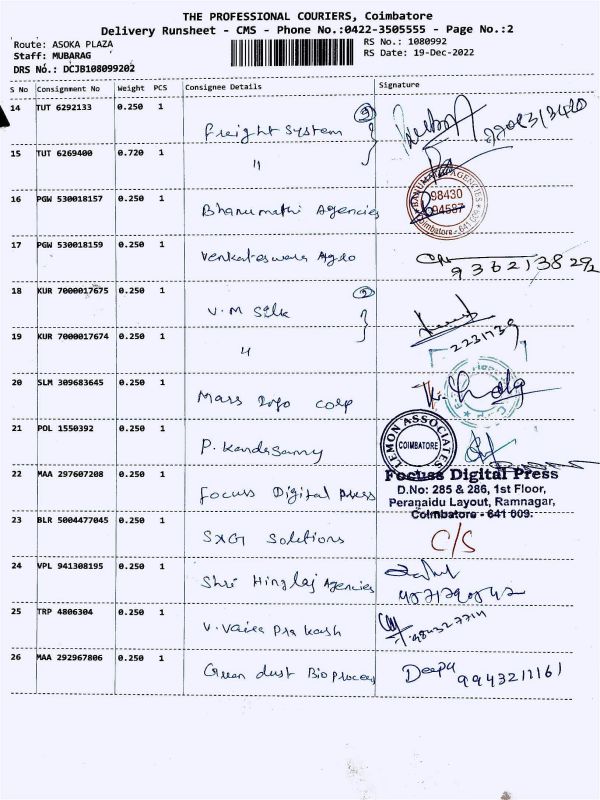 THE PROFESSIONAL COURIERS, Coimbatore
Delivery Runsheet - CMS - Phone No.:0422-3505555 - Page No.:2
Route: ASOKA PLAZA
RS No.: 1080992
Staff: MUBARAG
RS Date: 19-Dec-2022
DRS No.: DCJB108099202
S No Consignment No Weight PCS Consignee Details Signature
14 TUT 6292133 0.250 1
Freight System (2)
15 TUT 6269400 0.720 1
"
16 PGW 530018157 0.250 1
Bhanumathi Agencies
BANUMATHI AGENCIES
98430
94587
Coimbatore - 641 009
17 PGW 530018159 0.250 1
Venkateswara Agro
18 KUR 7000017675 0.250 1
V.M Silk (2)
2231739
19 KUR 7000017674 0.250 1
"
20 SLM 309683645 0.250 1
Mass Info Corp
21 POL 1550392 0.250 1
P. Kandasamy
LEMON ASSOCIATES
COIMBATORE
22 MAA 297607208 0.250 1
Focuss Digital Press
Focuss Digital Press
D.No: 285 & 286, 1st Floor,
Peranaidu Layout, Ramnagar,
Coimbatore - 641 009.
23 BLR 5004477045 0.250 1
SXG Solutions
C/S
24 VPL 941308195 0.250 1
Shri Hinglaj Agencies
25 TRP 4806304 0.250 1
26 MAA 292967806 0.250 1
Green dust Bioprocess
Deepa 9943211161